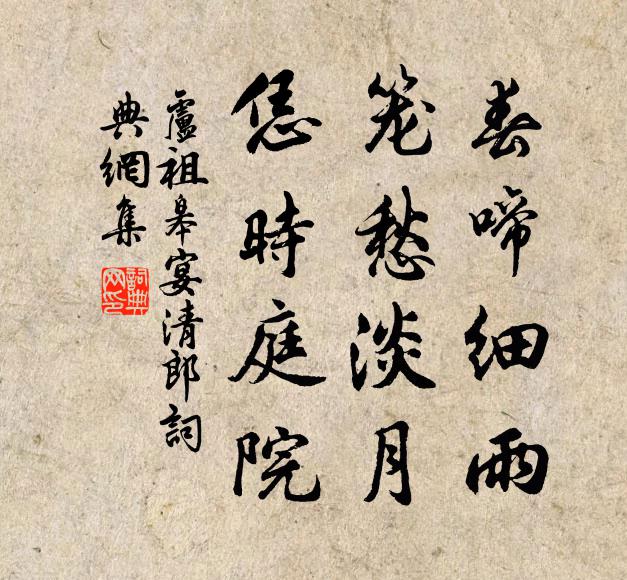 春啼細雨
笼愁淡月
恁時庭院
盧祖皋宴清郎詞
典網集
詞典网印